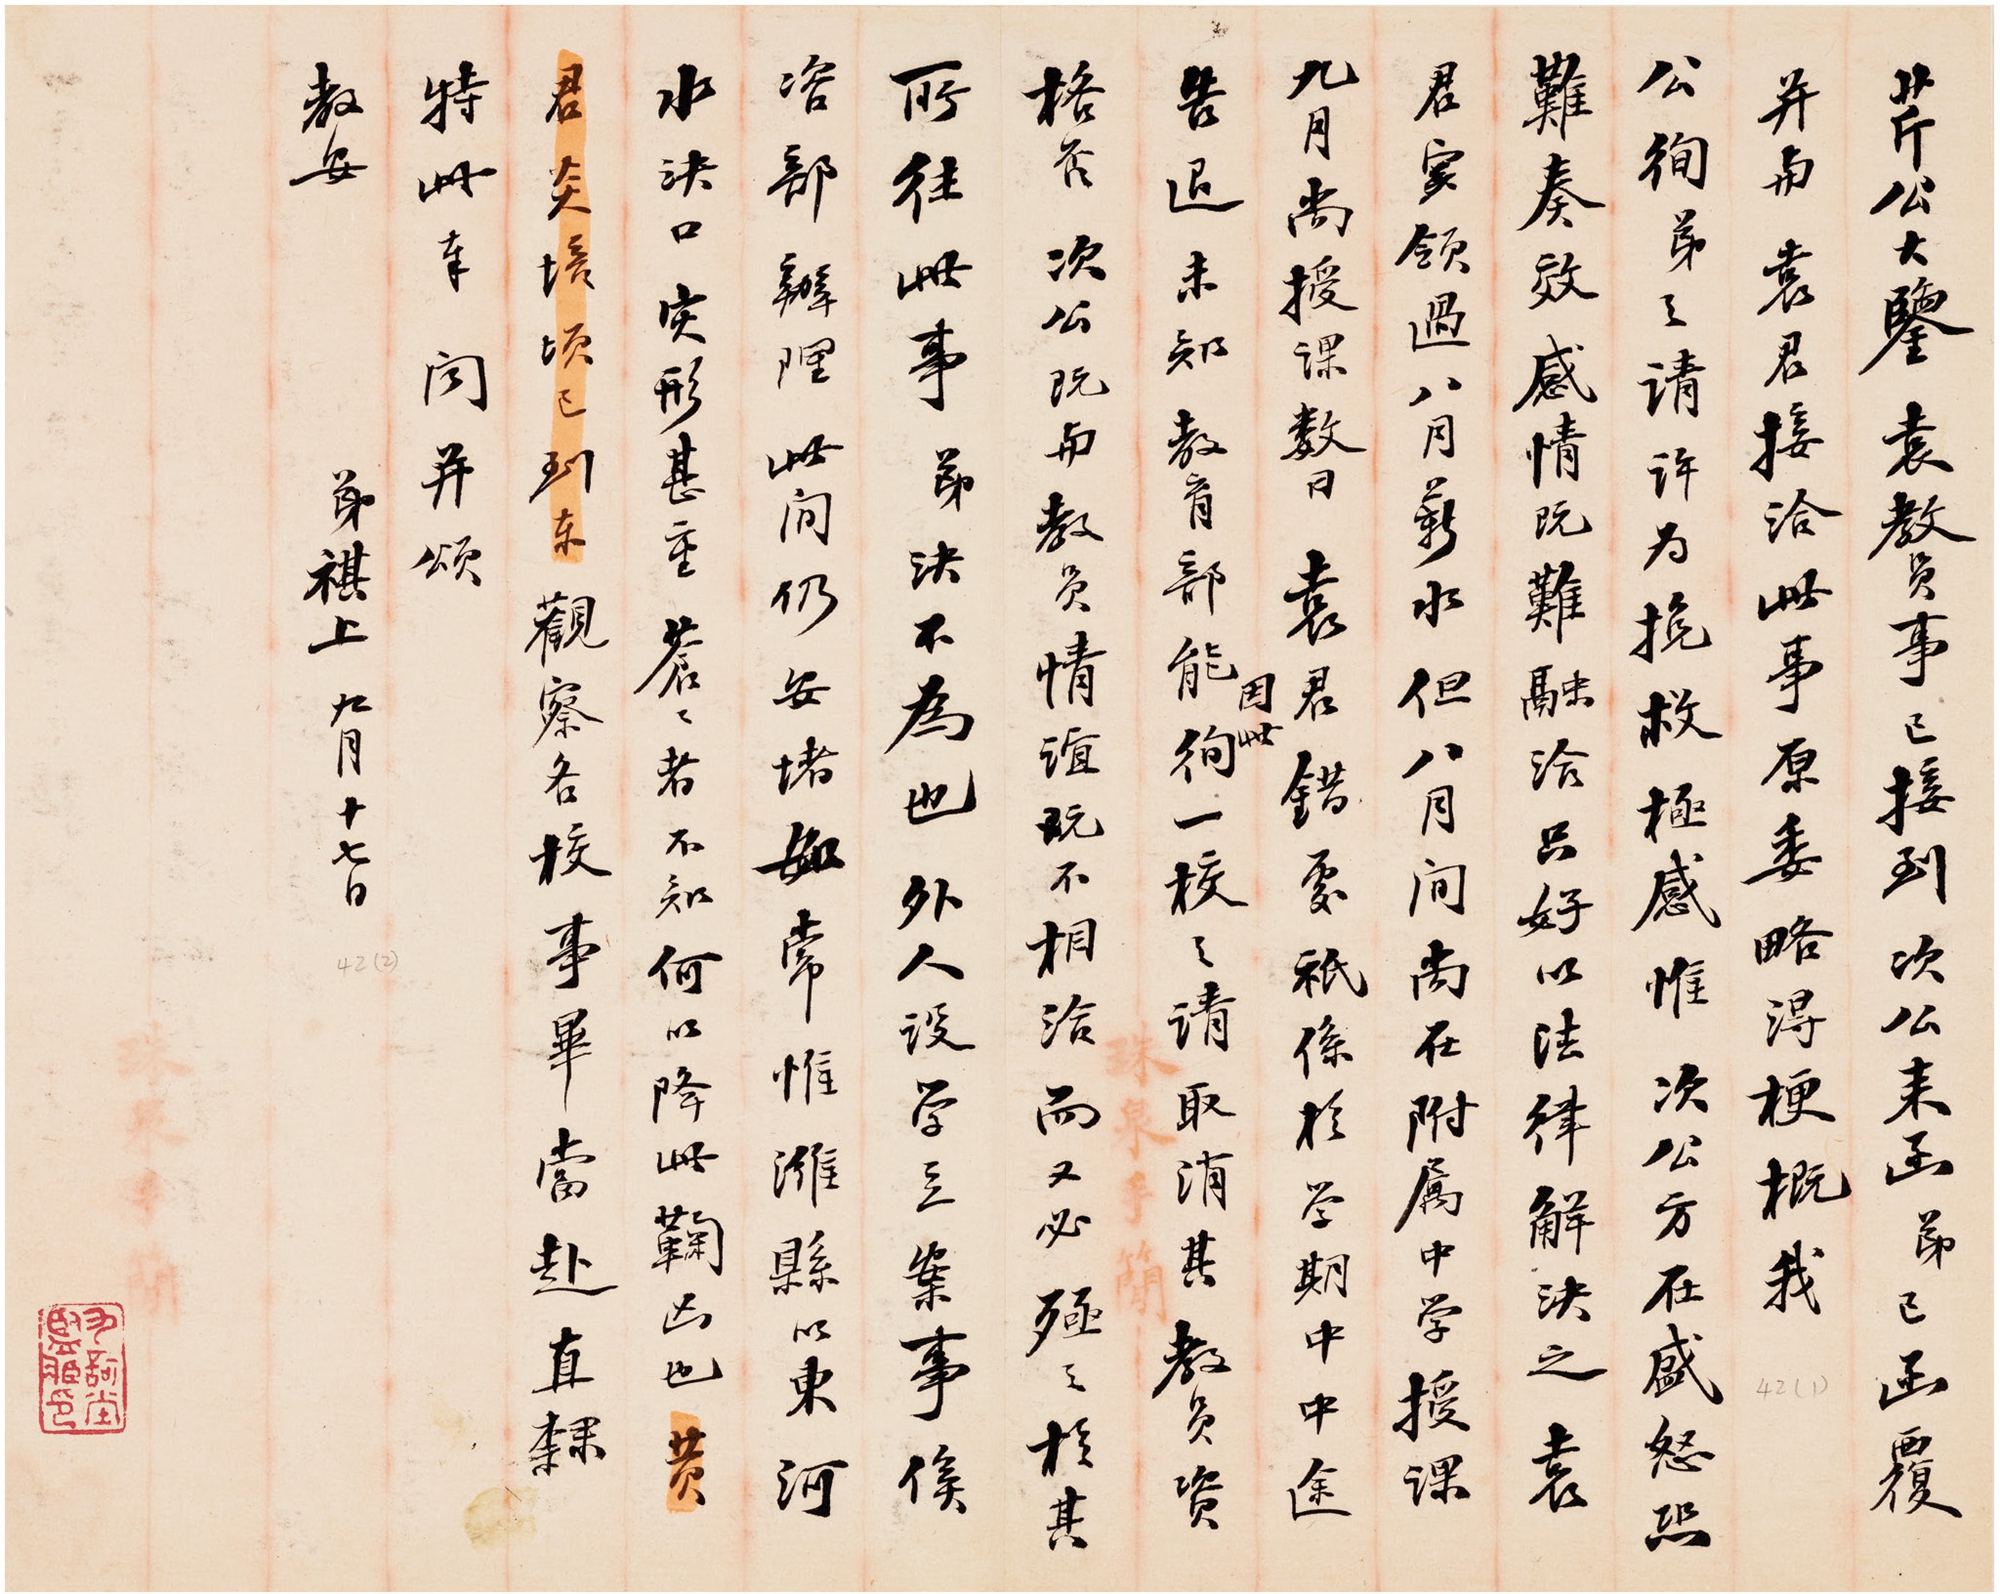 芹公大鑒 袁教員事已接到 次公来函 弟已函覆
并与 袁君接洽此事原委略得梗概我
公徇弟之請許为挽救極感惟 次公方在盛怒恐
難奏效感情既難融洽只好以法律解決之 袁
君實領過八月薪水但八月间尚在附属中学授课
九月尚授课数日 袁君錯處祇係於学期中中途
告退未知教育部能因此徇一校之請取消其教員資
格否 次公既与教員情誼既不相洽而又必殛之於其
所往此事 弟決不為也 外人设学立案事俟
咨部辦理 此间仍安堵如常惟濰縣以東河
水決口灾形甚重 茕茕者不知何以降此鞠凶也 黄
君炎培頃已到东觀察各校事畢當赴直隸
特此奉闻并頌
教安
弟祺上 九月十七日
珠泉手簡
珠泉手簡
42(1)
42(2)